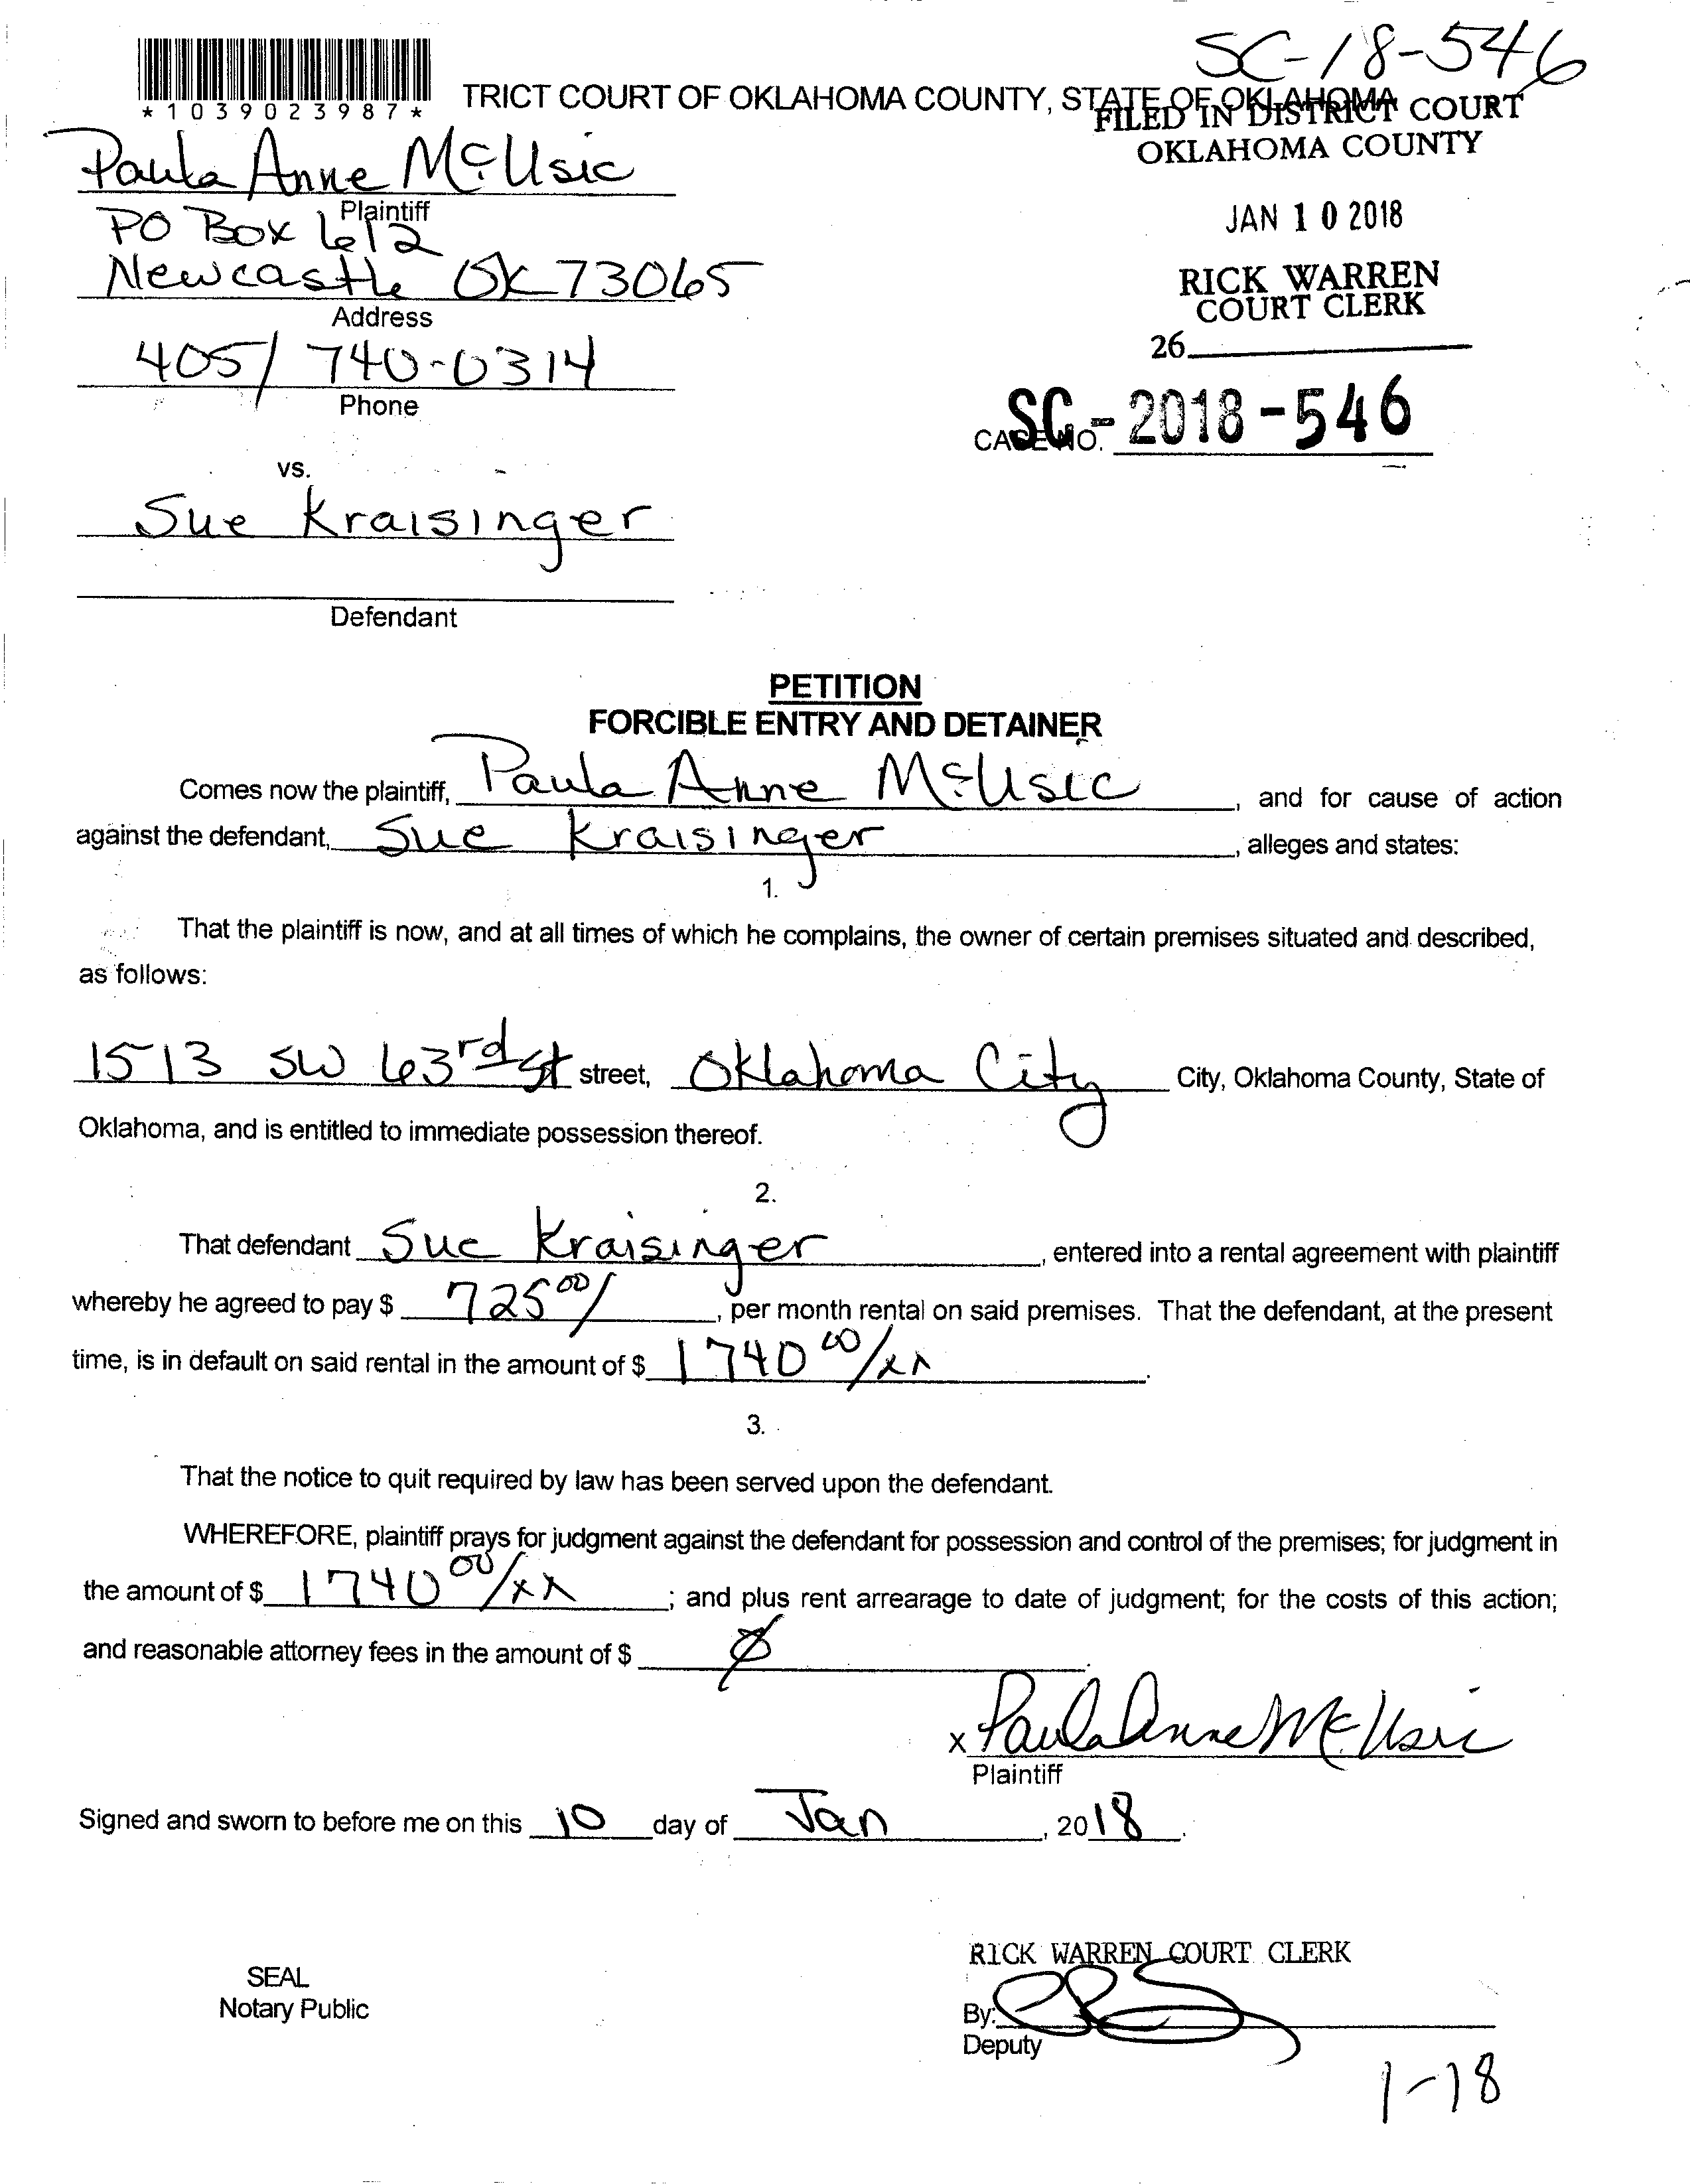 SC-18-546
*1039023987*
TRICT COURT OF OKLAHOMA COUNTY, STATE OF OKLAHOMA
FILED IN DISTRICT COURT
OKLAHOMA COUNTY
JAN 10 2018
RICK WARREN
COURT CLERK
26
SC-2018-546
CASE NO.
Paula Anne McUsic
Plaintiff
PO Box 612
Newcastle OK 73065
Address
405/ 740-0314
Phone
vs.
Sue Kraisinger
Defendant
PETITION
FORCIBLE ENTRY AND DETAINER
Comes now the plaintiff, Paula Anne McUsic, and for cause of action
against the defendant, Sue Kraisinger, alleges and states:
1.
That the plaintiff is now, and at all times of which he complains, the owner of certain premises situated and described,
as follows:
1513 SW 63rd St street, Oklahoma City City, Oklahoma County, State of
Oklahoma, and is entitled to immediate possession thereof.
2.
That defendant Sue Kraisinger, entered into a rental agreement with plaintiff
whereby he agreed to pay $ 725 00/, per month rental on said premises. That the defendant, at the present
time, is in default on said rental in the amount of $ 1740 00/xx.
3.
That the notice to quit required by law has been served upon the defendant.
WHEREFORE, plaintiff prays for judgment against the defendant for possession and control of the premises; for judgment in
the amount of $ 1740 00/xx; and plus rent arrearage to date of judgment; for the costs of this action;
and reasonable attorney fees in the amount of $ Ø.
x Paula Anne McUsic
Plaintiff
Signed and sworn to before me on this 10 day of Jan, 2018.
RICK WARREN COURT CLERK
SEAL
Notary Public
By:
Deputy
1-18